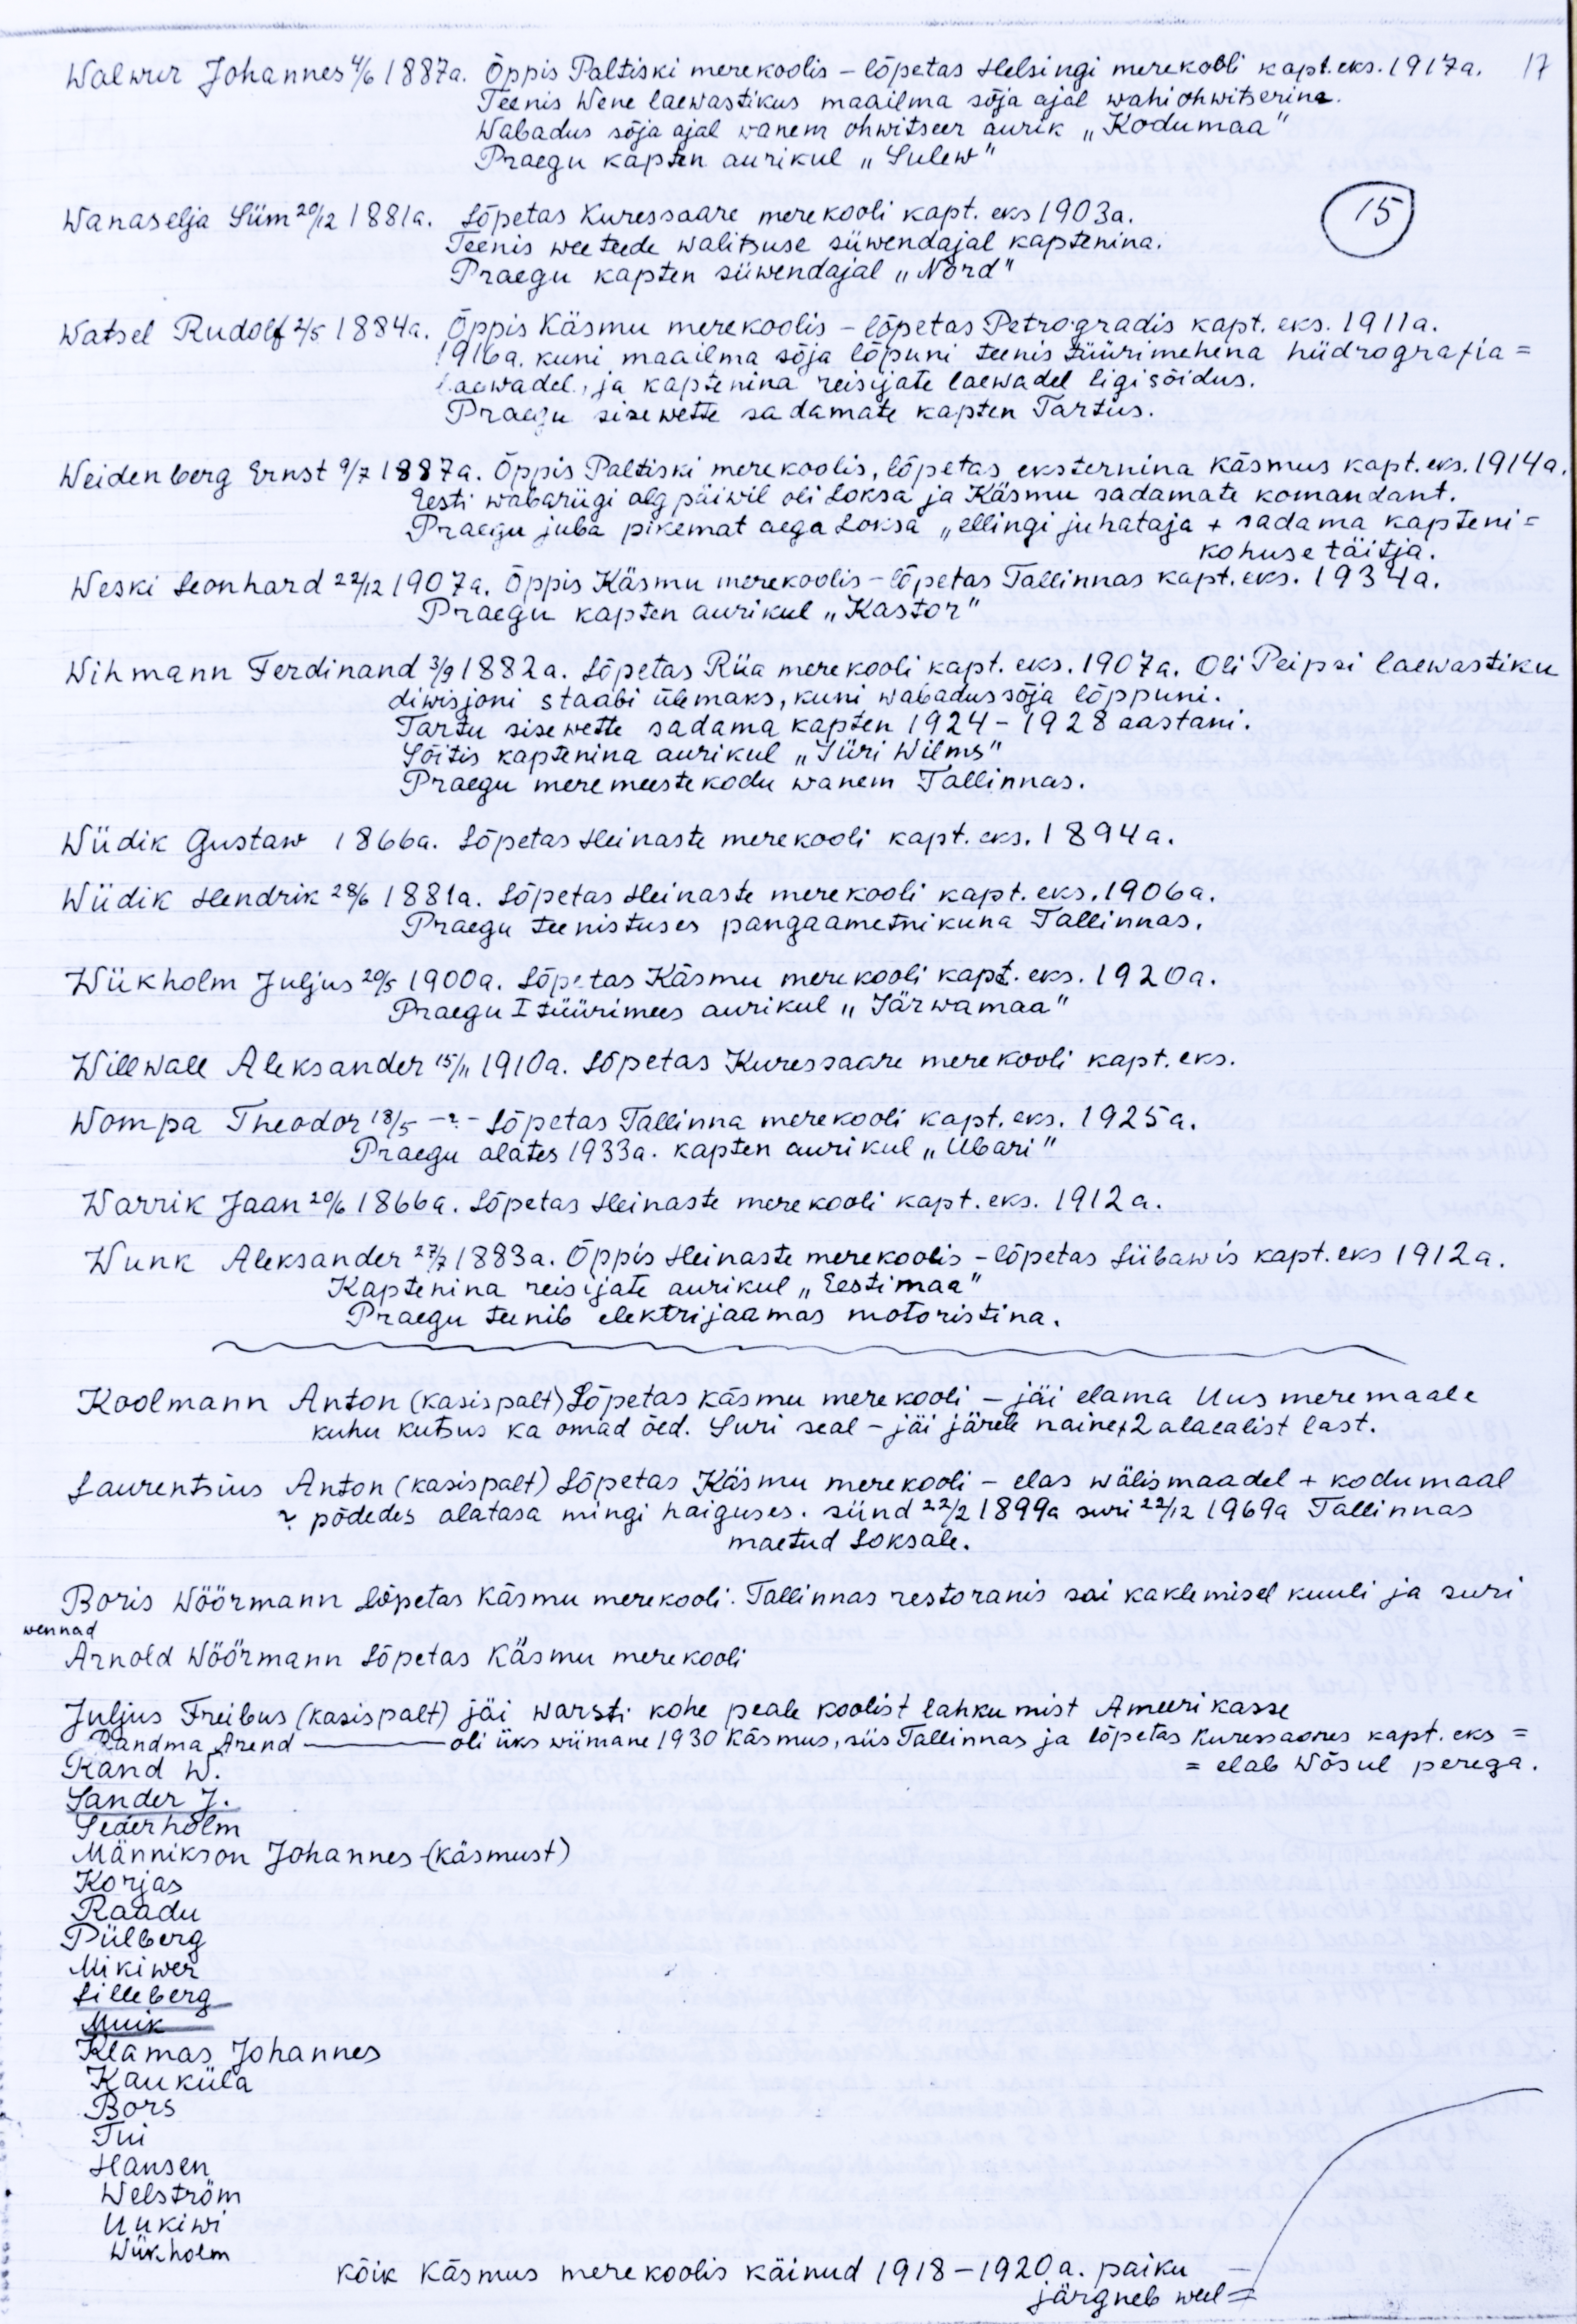 Walwur Johannes 4/6 1887a. Õppis Paltiski merekoolis – lõpetas Helsingi merekooli kapt. eks. 1917a. 17
Teenis Wene laewastikus maailma sõja ajal wahiohwitserina.
Wabadus sõja ajal wanem ohwitseer aurik „Kodumaa"
Praegu kapten aurikul „Sulew"
Wanaselja Siim 20/12 1881a. Lõpetas Kuressaare merekooli kapt. eks 1903a.
15
Teenis weeteede walitsuse süwendajal kaptenina.
Praegu kapten süwendajal „Nord"
Watsel Rudolf 2/5 1884a. Õppis Käsmu merekoolis – lõpetas Petrogradis kapt. eks. 1911a.
1916a. kuni maailma sõja lõpuni teenis tüürimehena hüdrografia =
laewadel, ja kaptenina reisijate laewadel ligisõidus.
Praegu sisewette sadamate kapten Tartus.
Weidenberg Ernst 9/7 1887a. Õppis Paltiski merekoolis, lõpetas eksternina Käsmus kapt. eks. 1914a.
Eesti wabariigi algpäiwil oli Loksa ja Käsmu sadamate komandant.
Praegu juba pikemat aega Loksa „ellingi juhataja + sadama kapteni =
kohuse täitja.
Weski Leonhard 22/12 1907a. Õppis Käsmu merekoolis – lõpetas Tallinnas kapt. eks. 1934a.
Praegu kapten aurikul „Kastor"
Wihmann Ferdinand 3/9 1882a. Lõpetas Riia merekooli kapt. eks. 1907a. Oli Peipsi laewastiku
diwisjoni staabi ülemaks, kuni wabadussõja lõppuni.
Tartu sisewette sadama kapten 1924 – 1928 aastani.
Sõitis kaptenina aurikul „Jüri Wilms"
Praegu meremeestekodu wanem Tallinnas.
Wiidik Gustaw 1866a. Lõpetas Heinaste merekooli kapt. eks. 1894a.
Wiidik Hendrik 28/6 1881a. Lõpetas Heinaste merekooli kapt. eks. 1906a.
Praegu teenistuses pangaametnikuna Tallinnas.
Wiikholm Juljus 20/5 1900a. Lõpetas Käsmu merekooli kapt. eks. 1920a.
Praegu I tüürimees aurikul „Järwamaa"
Willwall Aleksander 15/11 1910a. Lõpetas Kuressaare merekooli kapt. eks.
Wompa Theodor 18/5 –?– Lõpetas Tallinna merekooli kapt. eks. 1925a.
Praegu alates 1933a. kapten aurikul „Ubari"
Warrik Jaan 20/6 1866a. Lõpetas Heinaste merekooli kapt. eks. 1912a.
Wunk Aleksander 27/7 1883a. Õppis Heinaste merekoolis – lõpetas Liibawis kapt. eks 1912a.
Kaptenina reisijate aurikul „Eestimaa"
Praegu teenib elektrijaamas motoristina.
Koolmann Anton (kasispalt) Lõpetas Käsmu merekooli – jäi elama Uus meremaale
kuhu kutsus ka omad õed. Suri seal – jäi järele naine + 2 alaealist last.
Laurentsius Anton (kasispalt) Lõpetas Käsmu merekooli – elas wälismaadel + kodumaal
? põdedes alatasa mingi haiguses. sünd 22/2 1899a suri 22/12 1969a Tallinnas
maetud Loksale.
Boris Wöörmann Lõpetas Käsmu merekooli. Tallinnas restoranis sai kaklemisel kuuli ja suri
wennad
Arnold Wöörmann Lõpetas Käsmu merekooli
Juljus Freibus (kasispalt) jäi warsti kohe peale koolist lahkumist Ameerikasse
Randma Arend ——— oli üks wiimane 1930 Käsmus, siis Tallinnas ja lõpetas Kuressaares kapt. eks =
Rand W. = elab Wõsul perega.
Sander J.
Sederholm
Männikson Johannes (käsmust)
Korjas
Raadu
Pülberg
Mikiwer
Lilleberg
Muik
Klamas Johannes
Kauküla
Bors
Tui
Hansen
Welström
Uukiwi
Wiikholm
kõik Käsmus merekoolis käinud 1918 – 1920a. paiku —
järgneb weel =